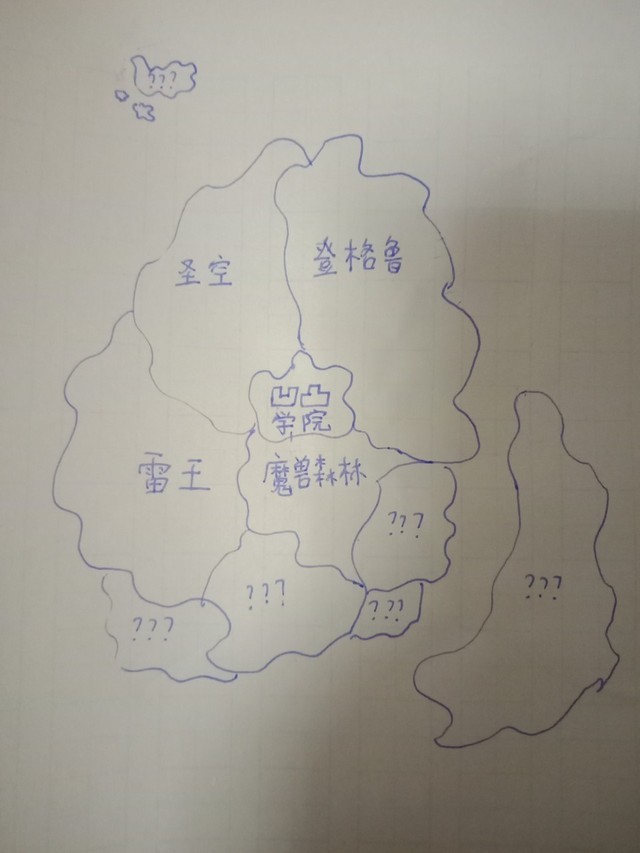 ???
圣空
登格鲁
凹凸
学院
雷王
魔兽森林
???
???
???
???
???